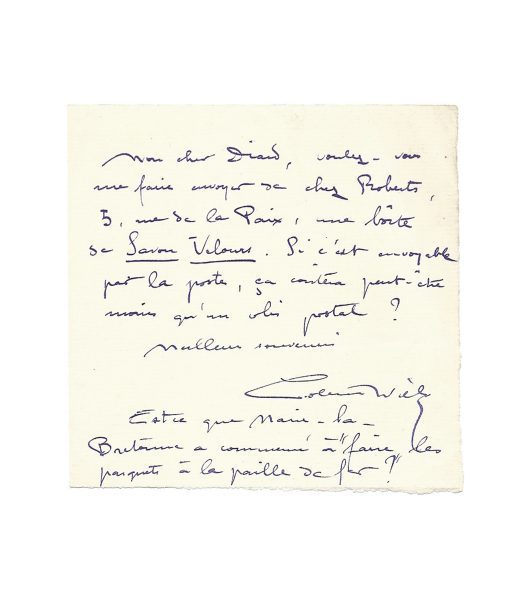 Mon cher Diard, voulez-vous
me faire envoyer de chez Roberts,
5, rue de la Paix, une boîte
de Savon Velours. Si c'est envoyable
par la poste, ça coûtera peut-être
moins qu'un colis postal ?
Meilleurs souvenirs
Colette Willy
Est-ce que Marie-la-
Bretonne a commencé à "faire" les
parquets à la paille de fer ?